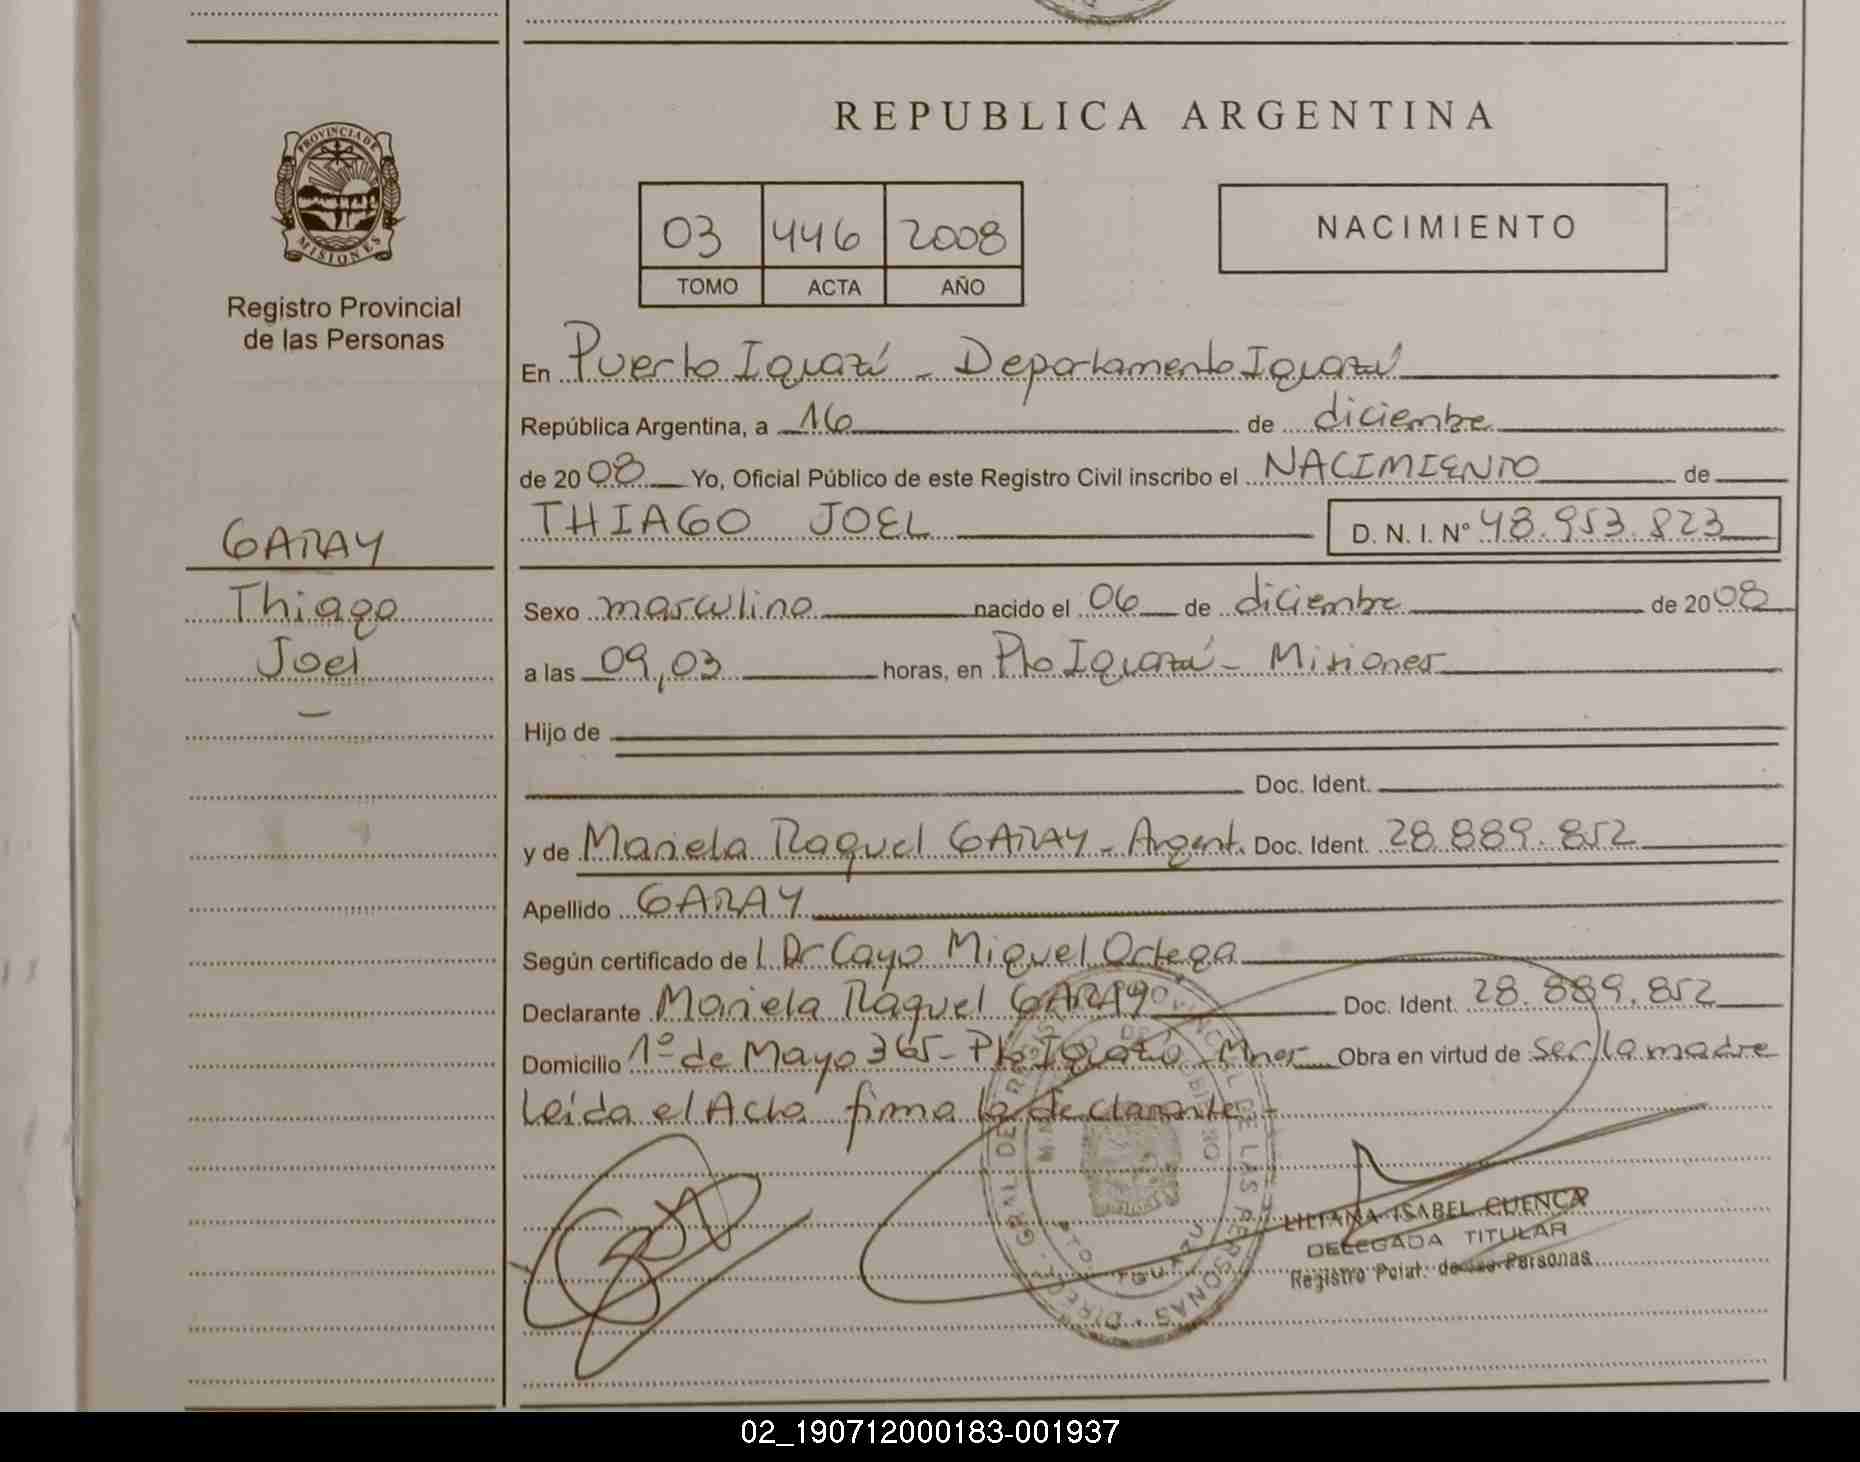 PROVINCIA DE
MISIONES
Registro Provincial
de las Personas
GARAY
Thiago
Joel
REPUBLICA ARGENTINA
03 446 2008
TOMO ACTA AÑO
NACIMIENTO
En Puerto Iguazú - Departamento Iguazú
República Argentina, a 16 de diciembre
de 2008 Yo, Oficial Público de este Registro Civil inscribo el NACIMIENTO de
THIAGO JOEL D. N. I. Nº 48.953.823
Sexo masculino nacido el 06 de diciembre de 2008
a las 09,03 horas, en Pto Iguazú - Misiones
Hijo de
Doc. Ident.
y de Mariela Raquel GARAY - Argent. Doc. Ident. 28.889.852
Apellido GARAY
Según certificado del Dr Cayo Miguel Ortega
Declarante Mariela Raquel GARAY Doc. Ident. 28.889.852
Domicilio 1º de Mayo 365 - Pto Iguazú - Mnes Obra en virtud de ser la madre
Leída el Acta firma la declarante.-
LILIANA ISABEL CUENCA
DELEGADA TITULAR
Registro Pcial. de las Personas
02_190712000183-001937